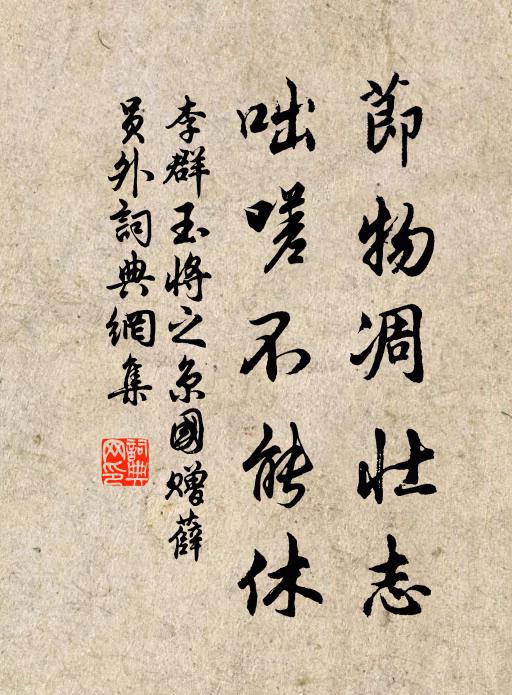 節物凋壯志
咄嗟不能休
李群玉將之京國贈薛
員外詞典網集
詞典網印